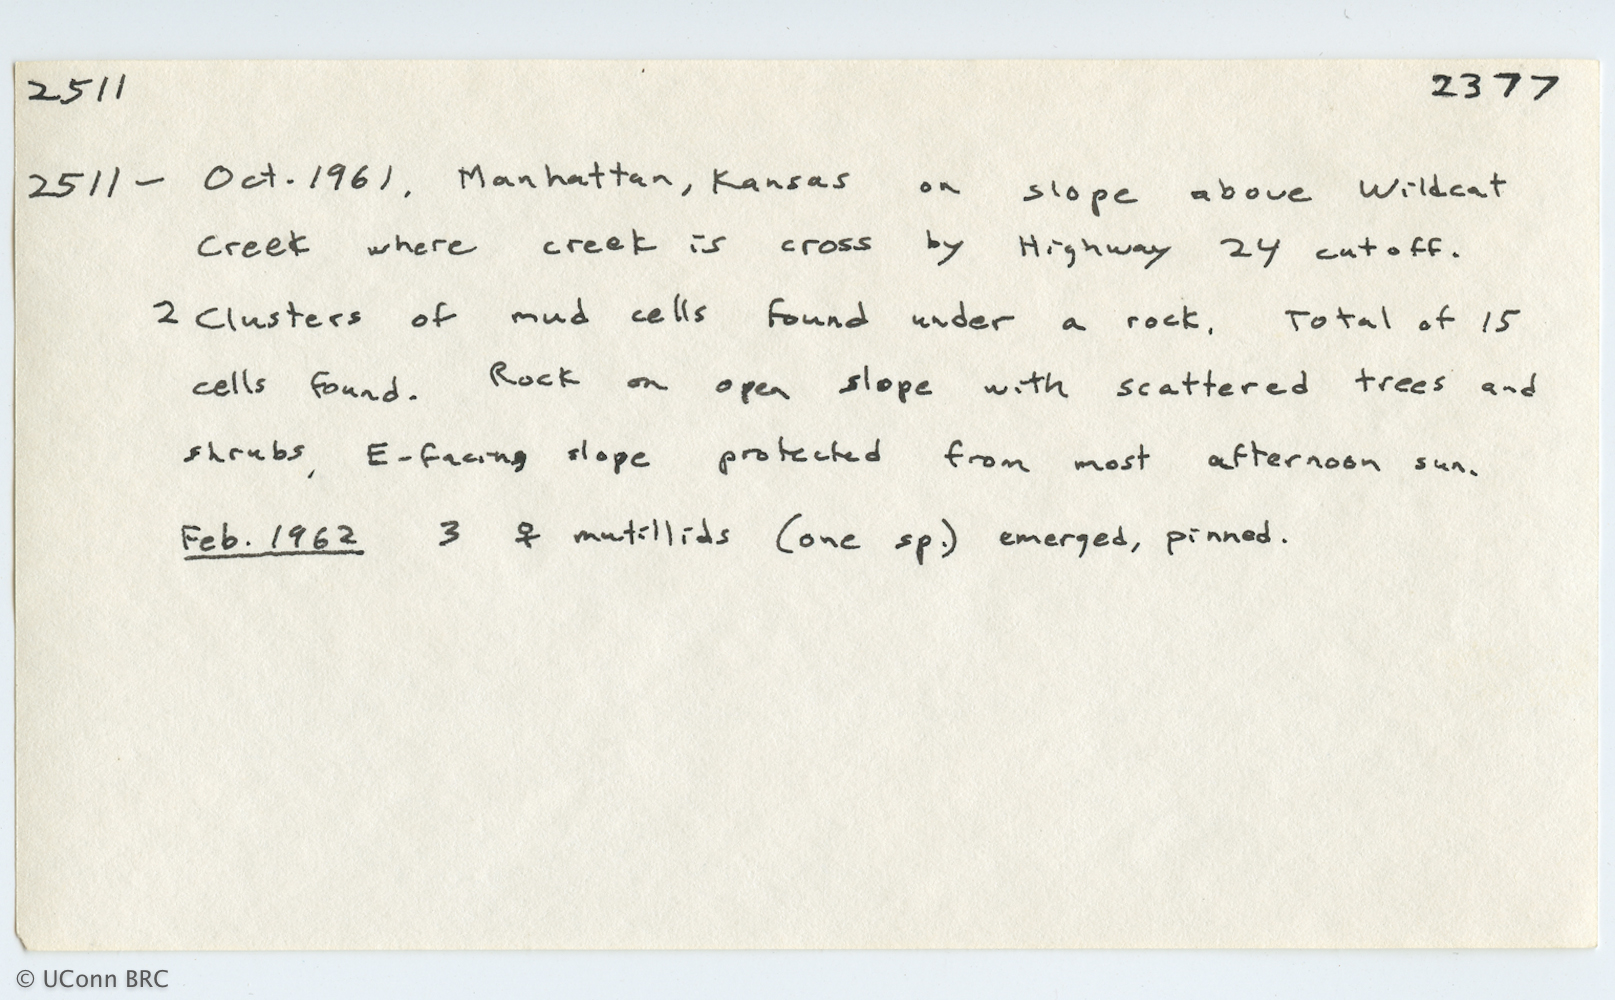 2511 2377
2511 - Oct. 1961, Manhattan, Kansas on slope above Wildcat
Creek where creek is cross by Highway 24 cutoff.
2 Clusters of mud cells found under a rock. Total of 15
cells found. Rock on open slope with scattered trees and
shrubs, E-facing slope protected from most afternoon sun.
Feb. 1962 3 ♀ mutillids (one sp.) emerged, pinned.
© UConn BRC